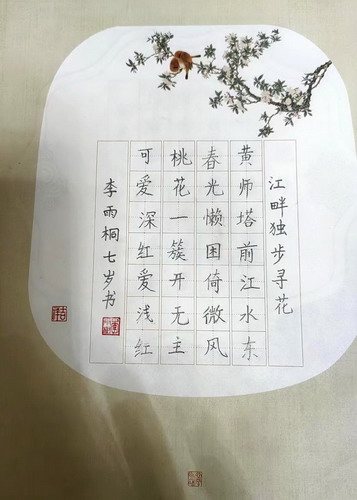 江畔独步寻花
黄师塔前江水东
春光懒困倚微风
桃花一簇开无主
可爱深红爱浅红
李雨桐七岁书